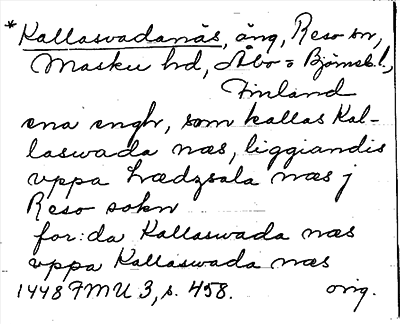 *Kallasvadanäs, äng, Reso sn,
Masku hd, Åbo = Björneb. l.,
Finland
ena engh, som kallas Kal-
laswada næs, liggiandis
vppa Lædzsala næs j
Reso sokn
for: da Kallaswada næs
vppa Kallaswada næs
1448 FMU 3, s. 458. orig.